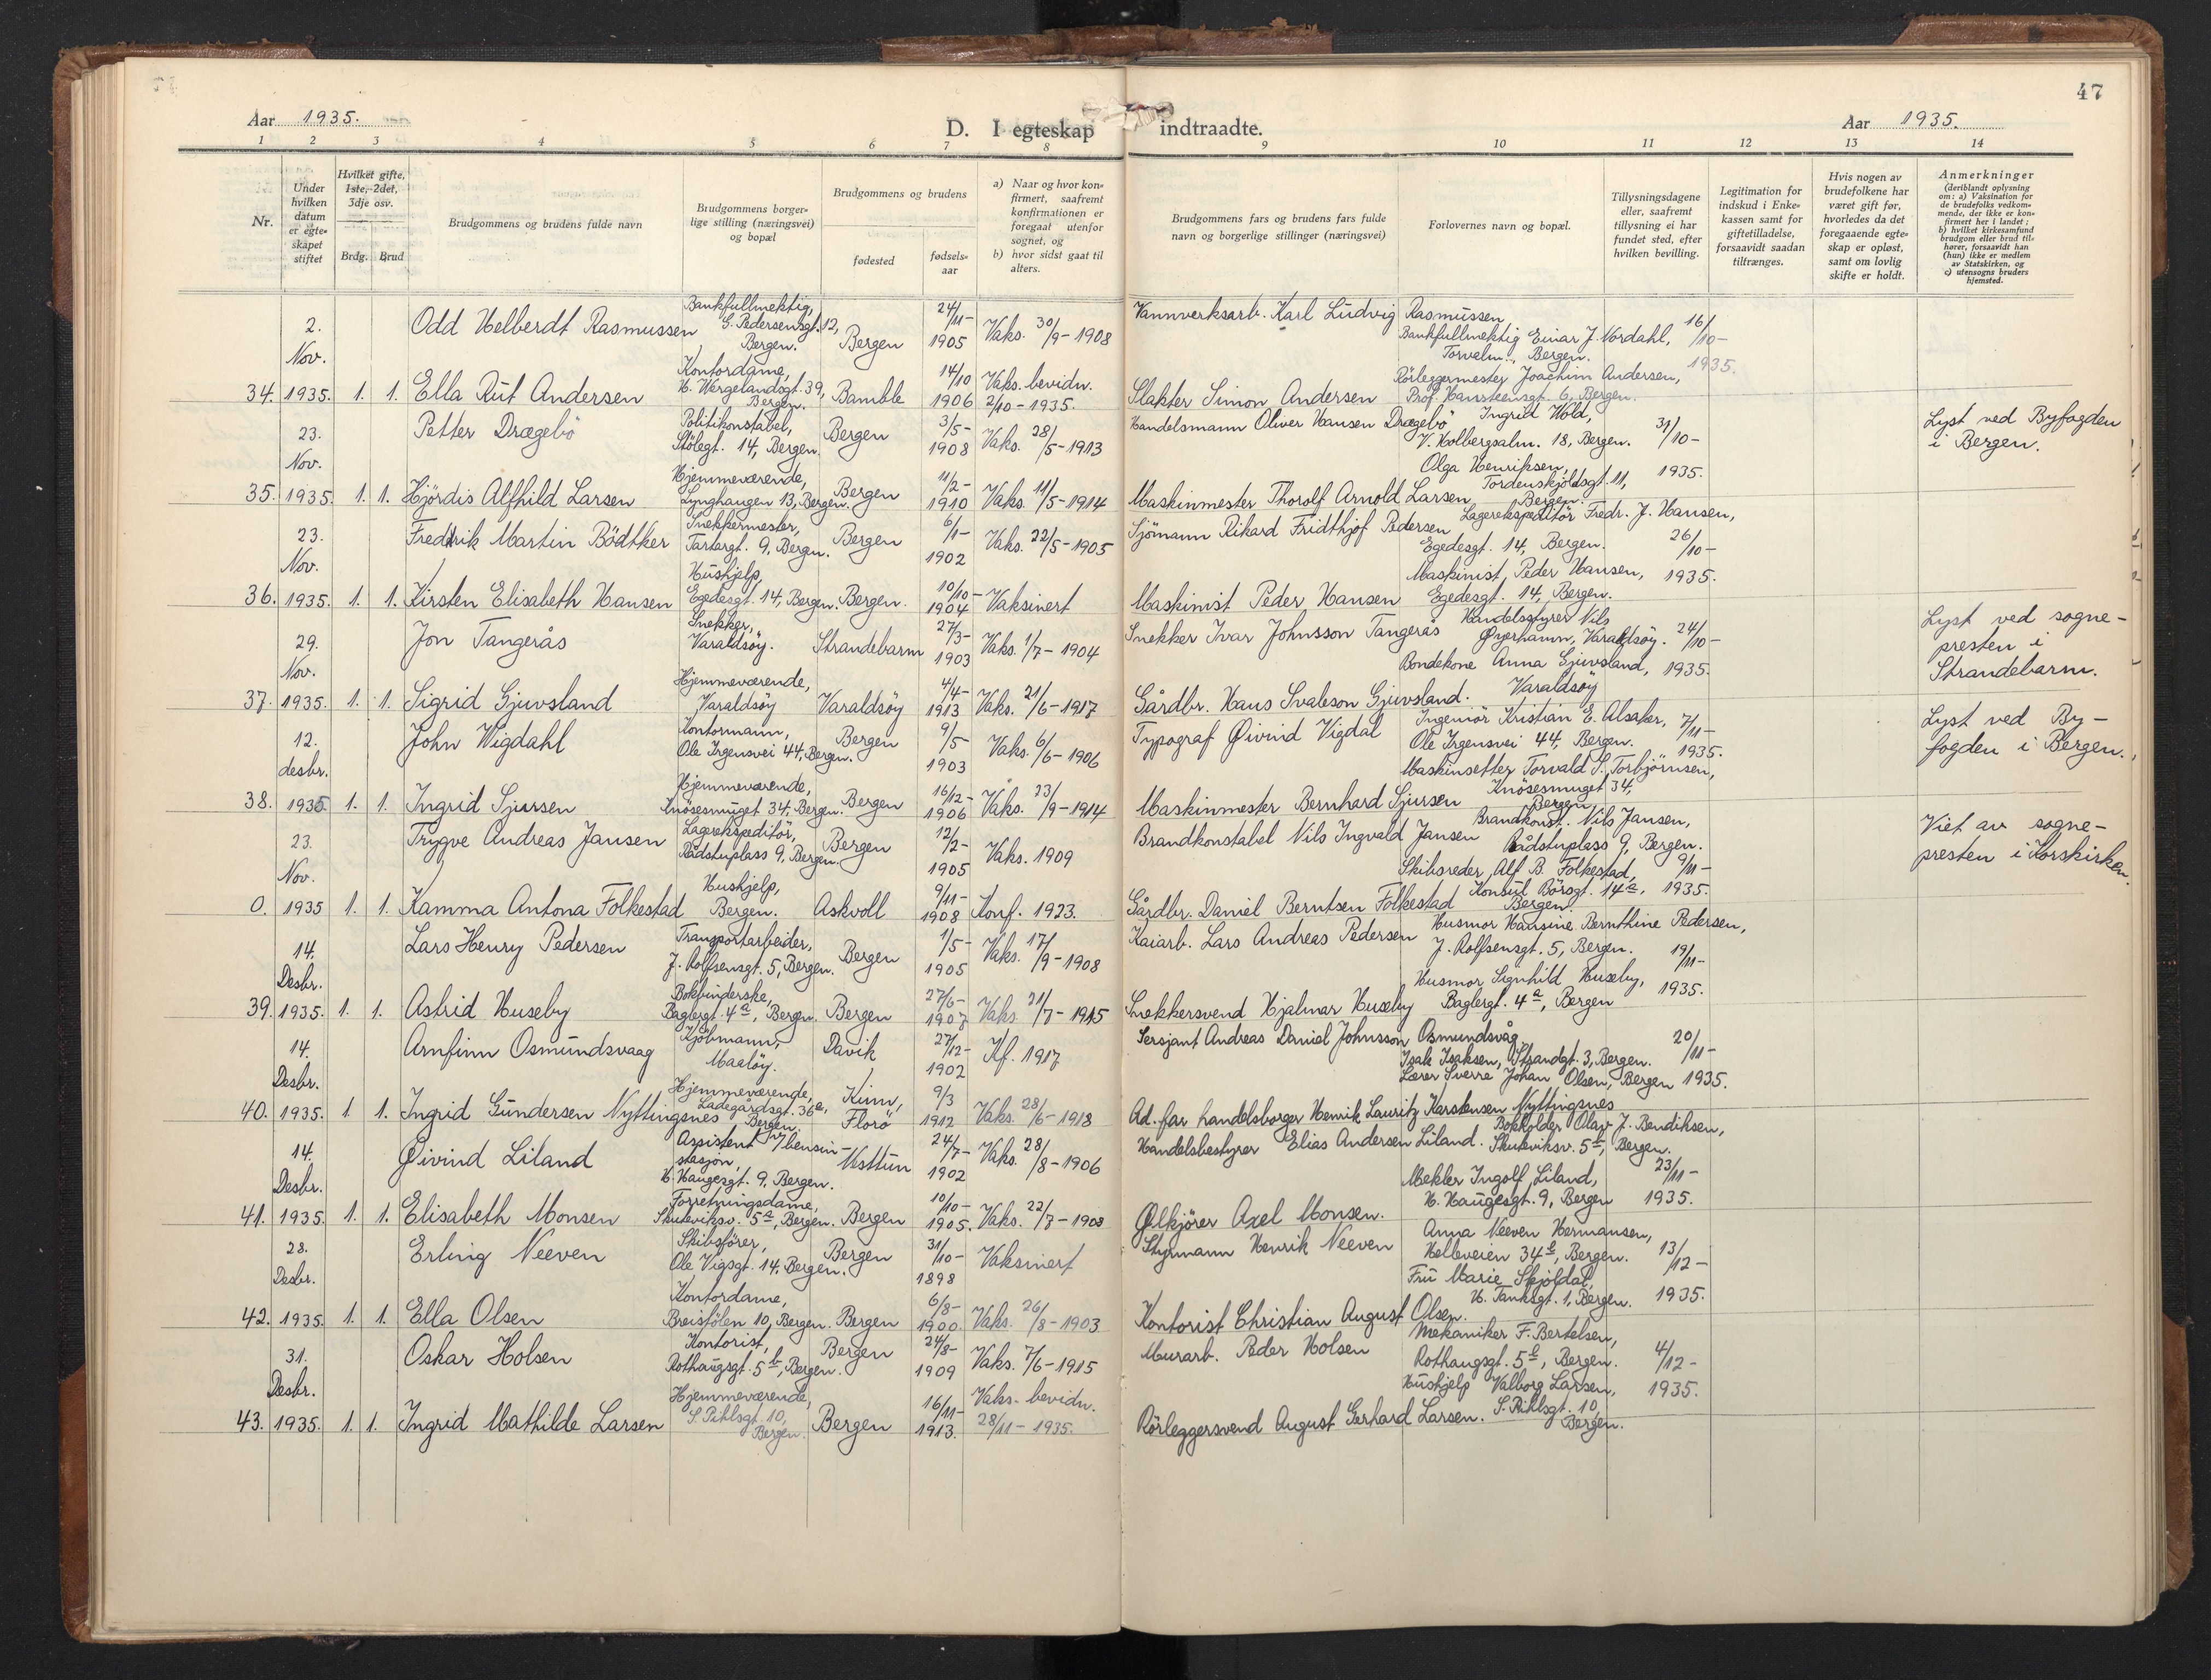 47
Aar 1935.
D. I egteskap indtraadte.
Aar 1935.
1 2 3 4 5 6 7 8 9 10 11 12 13 14
Nr.
Under hvilken datum er egteskapet stiftet
Hvilket gifte, 1ste, 2det, 3dje osv.
Brdg. Brud
Brudgommens og brudens fulde navn
Brudgommens borgerlige stilling (næringsvei) og bopæl
Brudgommens og brudens
fødested
fødselsaar
a) Naar og hvor konfirmert, saafremt konfirmationen er foregaat utenfor sognet, og
b) hvor sidst gaat til alters.
Brudgommens fars og brudens fars fulde navn og borgerlige stillinger (næringsvei)
Forlovernes navn og bopæl.
Tillysningsdagene eller, saafremt tillysning ei har fundet sted, efter hvilken bevilling.
Legitimation for indskud i Enkekassen samt for giftetilladelse, forsaavidt saadan tiltrænges.
Hvis nogen av brudefolkene har været gift før, hvorledes da det foregaaende egteskap er opløst, samt om lovlig skifte er holdt.
Anmerkninger
(deriblandt oplysning om: a) Vaksination for de brudefolks vedkommende, der ikke er konfirmert her i landet; b) hvilket kirkesamfund brudgom eller brud tilhører, forsaavidt han (hun) ikke er medlem av Statskirken, og c) utensogns bruders hjemsted.
34. 2. Nov. 1935. 1. 1.
Odd Helberdt Rasmussen
Bankfullmektig, G. Pedersensgt. 12, Bergen.
Bergen
24/11- 1905
Vaks. 30/9-1908
Vannverksarb. Karl Ludvig Rasmussen
Bankfullmektig Einar J. Nordahl, Torvalm., Bergen.
16/10- 1935.
Ella Rut Andersen
Kontordame, H. Wergelandsgt. 39, Bergen.
Bamble
14/10 1906
Vaks. bevidn. 2/10-1935.
Slakter Simon Andersen
Rörleggermester Joachim Andersen, Prof. Hansteensgt. 6, Bergen.
35. 23. Nov. 1935. 1. 1.
Petter Drægebö
Politikonstabel, Stölegt. 14, Bergen.
Bergen
3/5- 1908
Vaks. 28/5-1913
Handelsmann Oliver Hansen Drægebö
Ingrid Wold, V. Holbergsalm. 18, Bergen.
31/10- 1935.
Lyst ved Byfogden i Bergen.
Hjördis Alfhild Larsen
Hjemmeværende, Lynghaugen 13, Bergen.
Bergen
11/2- 1910
Vaks. 11/5-1914
Maskinmester Thorolf Arnold Larsen
Olga Henriksen, Tordenskjoldsgt. 11, Bergen.
36. 23. Nov. 1935. 1. 1.
Fredrik Martin Bödtker
Snekkermester, Tartargt. 9, Bergen.
Bergen
6/1- 1902
Vaks. 22/5-1905
Sjömann Rikard Fridthjof Pedersen
Lagerekspeditör Fredr. J. Hansen, Egedesgt. 14, Bergen.
26/10- 1935.
Kirsten Elisabeth Hansen
Hushjelp, Egedesgt. 14, Bergen.
Bergen.
10/10- 1904
Vaksinert
Maskinist Peder Hansen
Maskinist, Peder Hansen, Egedesgt. 14, Bergen.
37. 29. Nov. 1935. 1. 1.
Jon Tangerås
Snekker, Varaldsöy.
Strandebarm
27/3- 1903
Vaks. 1/7-1904
Snekker Ivar Johnsson Tangerås
Handelsstyrer Nils Öyerhamn, Varaldsöy.
24/10- 1935.
Lyst ved sognepresten i Strandebarm.
Sigrid Gjuvsland
Hjemmeværende, Varaldsöy
Varaldsöy
4/4- 1913
Vaks. 21/6-1917
Gårdbr. Hans Svaleson Gjuvsland.
Bondekone Anna Gjuvsland, Varaldsöy
38. 12. desbr. 1935. 1. 1.
John Wigdahl
Kontormann, Ole Irgensvei 44, Bergen.
Bergen
9/5 1903
Vaks. 6/6-1906
Typograf Øivind Vigdal
Ingeniör Kristian E. Alsaker, Ole Irgensvei 44, Bergen.
7/11- 1935.
Lyst ved Byfogden i Bergen.
Ingrid Sjursen
Hjemmeværende, Knösesmuget 34, Bergen.
Bergen
16/12- 1906
Vaks. 23/9-1914
Maskinmester Bernhard Sjursen
Maskinsetter Torvald S. Torbjörnsen, Knösesmuget 34, Bergen
0. 23. Nov. 1935 1. 1.
Trygve Andreas Jansen
Lagerekspeditör, Rådstuplass 9, Bergen.
Bergen
12/2- 1905
Vaks. 1909
Brandkonstabel Nils Ingvald Jansen
Brandkonst. Nils Jansen, Rådstuplass 9, Bergen.
9/11- 1935.
Viet av sognepresten i Korskirken.
Kamma Antona Folkestad
Hushjelp, Bergen.
Askvoll
9/11- 1908
Konf. 1923.
Gårdbr. Daniel Berntsen Folkestad
Skibsreder Alf B. Folkestad, Konsul Börsgt. 14a, Bergen.
39. 14. Desbr. 1935. 1. 1.
Lars Henry Pedersen
Transportarbeider, J. Rolfsensgt. 5, Bergen.
Bergen
1/5- 1905
Vaks. 17/9-1908
Kaiarb. Lars Andreas Pedersen
Husmor Hansine Bernthine Pedersen, J. Rolfsensgt. 5, Bergen.
19/11- 1935.
Astrid Huseby
Bokbinderske, Baglergt. 4a, Bergen.
Bergen
27/6- 1907
Vaks. 21/7-1915
Snekkersvend Hjalmar Huseby
Husmor Signhild Huseby, Baglergt. 4a, Bergen
40. 14. Desbr. 1935. 1. 1.
Arnfinn Osmundsvaag
Kjöbmann, Maalöy.
Davik
27/12- 1902
Kf. 1917
Sersjant Andreas Daniel Johnsson Osmundsvåg
Isak Isaksen, Strandgt. 3, Bergen.
20/11- 1935.
Ingrid Gundersen Nyttingsnes
Hjemmeværende, Ladegårdsgt. 36a, Bergen.
Kinn, Florö
9/3 1912
Vaks. 28/6-1918
Ad. far handelsborger Henrik Lauritz Karstensen Nyttingsnes
Lærer Sverre Johan Olsen, Bergen
41. 14. Desbr. 1935. 1. 1.
Øivind Liland
Assistent v/bensinstasjon, H. Haugesgt. 9, Bergen.
Nesttun
24/7- 1902
Vaks. 28/8-1906
Handelsbestyrer Elias Andersen Liland.
Bokholder Olav J. Bendiksen, Skuteviksv. 5a, Bergen.
23/11- 1935.
Elisabeth Monsen
Forretningsdame, Skuteviksv. 5a, Bergen.
Bergen
10/10- 1905.
Vaks. 22/7-1908
Ølkjörer Axel Monsen.
Mekler Ingolf Liland, H. Haugesgt. 9, Bergen
42. 28. Desbr. 1935. 1. 1.
Erling Neeven
Skibsförer, Ole Vigsgt. 14, Bergen.
Bergen
31/10- 1898
Vaksinert
Styrmann Henrik Neeven
Anna Neeven Hermansen, Helleveien 34b, Bergen.
13/12- 1935.
Ella Olsen
Kontordame, Breistölen 10, Bergen.
Bergen
6/8- 1900.
Vaks. 26/8-1903
Kontorist Christian August Olsen.
Fru Marie Skjöldal, H. Tanksgt. 1, Bergen.
43. 31. Desbr. 1935. 1. 1.
Oskar Holsen
Kontorist, Rothaugsgt. 5b, Bergen.
Bergen
24/8- 1909
Vaks. 7/6-1915
Murarb. Peder Holsen
Mekaniker F. Bertelsen, Rothaugsgt. 5b, Bergen.
4/12- 1935.
Ingrid Mathilde Larsen
Hjemmeværende, S. Pihlsgt. 10, Bergen.
Bergen
16/11- 1913.
Vaks. bevidn. 28/11-1935.
Rörleggersvend August Gerhard Larsen.
Hushjelp Valborg Larsen, S. Pihlsgt. 10, Bergen.